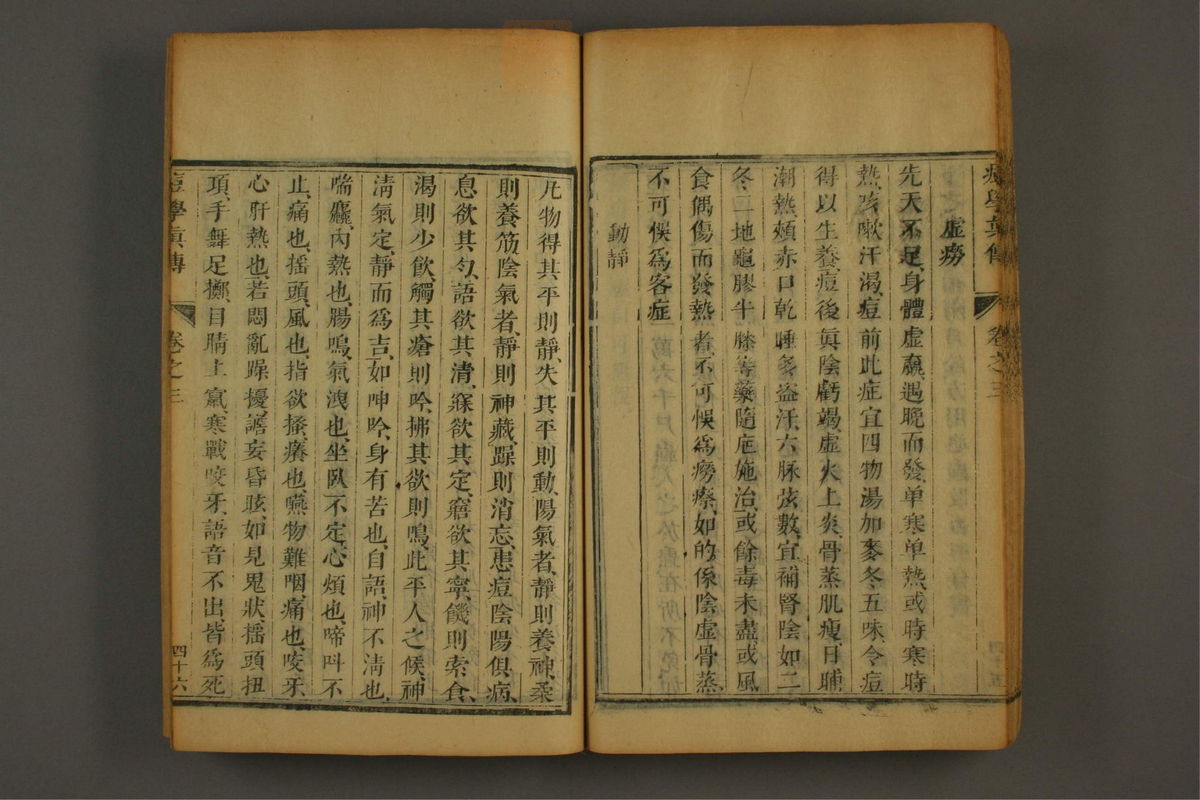 痘學眞傳 卷之三
虛癆
先天不足、身體虛羸、遇晚而發、单寒单熱、或時寒時
熱、咳嗽汗渴、痘前此症、宜四物湯加麥冬五味、令痘
得以生養、痘後眞陰虧竭、虛火上炎、骨蒸肌瘦、日晡
潮熱、頰赤口乾、睡多盗汗、六脉弦數、宜補腎陰、如二
冬二地龜膠牛膝等藥、隨症施治、或餘毒未盡、或風
食偶傷而發熱者、不可悞爲癆瘵、如的係陰虛骨蒸
不可悞爲客症
動靜
凡物得其平則靜、失其平則動、陽氣者、靜則養神、柔
則養筋、陰氣者、靜則神藏、躁則消忘、患痘陰陽俱病、
息欲其勻、語欲其清、寐欲其定、寤欲其寧、饑則索食、
渴則少飲、觸其瘡則吟、拂其欲則鳴、此平人之候、神
清氣定、靜而爲吉、如呻吟、身有苦也、自語、神不清也、
喘麤、內熱也、腸鳴、氣洩也、坐臥不定、心煩也、啼呌不
止、痛也、揺頭、風也、指欲搔、癢也、嚥物難、咽痛也、咬牙、
心肝熱也、若悶亂躁擾、譫妄昏眩、如見鬼狀、揺頭扭
項、手舞足擲、目睛上竄、寒戰咬牙、語音不出、皆爲死
痘學眞傳 卷之三 四十六